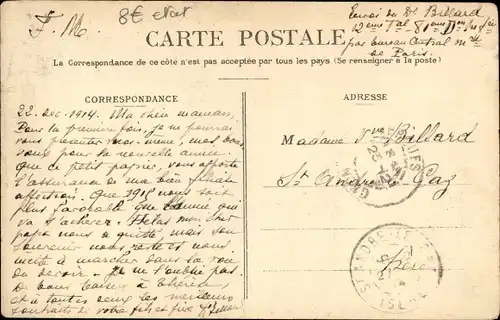 F. M.
8€ etat
Envoi du Dr Billard
12eme Tal 81eme Don
par bureau Central
de Paris
CARTE POSTALE
La Correspondance de ce côté n'est pas acceptée par tous les pays (Se renseigner à la poste)
CORRESPONDANCE
22 Dec. 1914. Ma chère maman,
Pour la première fois, je ne pourrai
vous présenter moi-même, mes bons
vœux pour la nouvelle année.
Que ce petit papier, vous apporte
l'assurance de ma bien filiale
affection. Que 1915 nous soit
plus favorable que l'année qui
va s'achever. Hélas mon cher
papa nous a quitté mais son
souvenir nous reste et nous
incite à marcher dans la voie
du devoir. Je ne l'oublie pas
De bons baisers à Thérèse,
et à toutes deux les meilleurs
souhaits de votre fils et frère
ADRESSE
Madame Vve Billard
St André-le-Gaz
Isère
ST ANDRÉ-LE-GAZ
ISÈRE